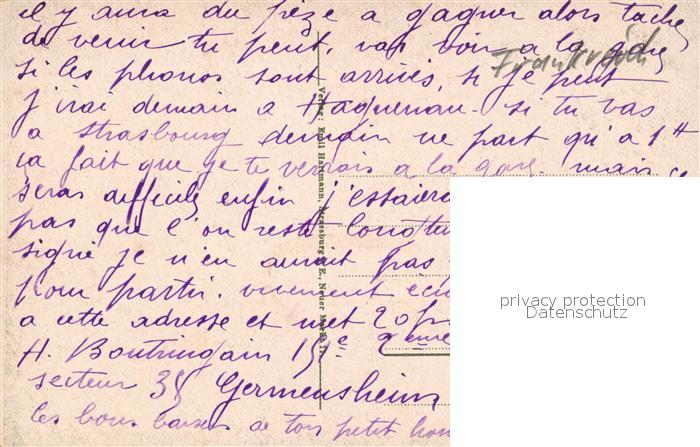 il y aura du pèze a gagner alors taches
de venir tu peut. vas voir a la gare
Frankreich
si les phonos sont arrivés, si je peut
j'irai demain a Haguenau. si tu vas
a Strasbourg demain ne part qu'a 1H
ca fait que je te verrais a la gare. mais ce
seras difficile enfin j'essaiera
pas que l'on reste
signé je n'en aurait pas
pour partir. vivement
a cette adresse et met 20f
H. Boutringain 15e 2eme
secteur 35 Germersheim
les bons baisers de ton petit
Verlag: Emil Hartmann, Strassburg i. E., Neuer Markt
privacy protection
Datenschutz